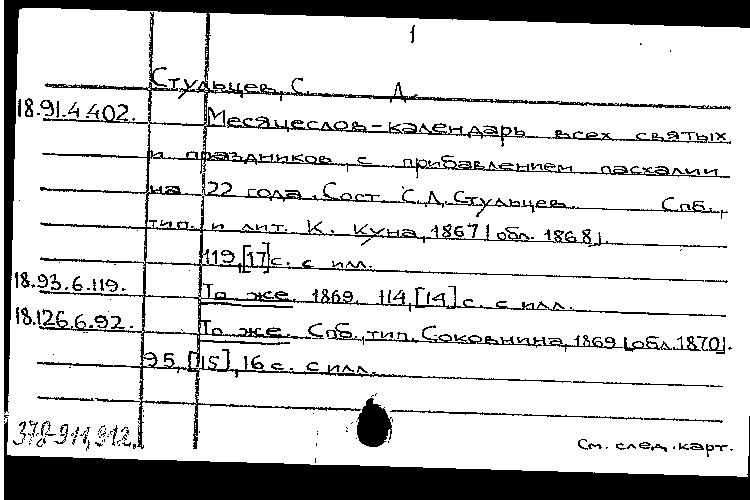 1
Стульцев, С. Л.
18.91.4.402. Месяцеслов-календарь всех святых
и праздников, с прибавлением пасхалии
на 22 года. Сост. С.Л. Стульцев. Спб.,
тип. и лит. К. Куна, 1867 [обл. 1868].
119, [17] с. с илл.
18.93.6.119. То же. 1869. 114, [14] с. с илл.
18.126.6.92. То же. Спб., тип. Соковнина, 1869 [обл. 1870].
95, [15], 16 с. с илл.
378-911, 912.
См. след. карт.